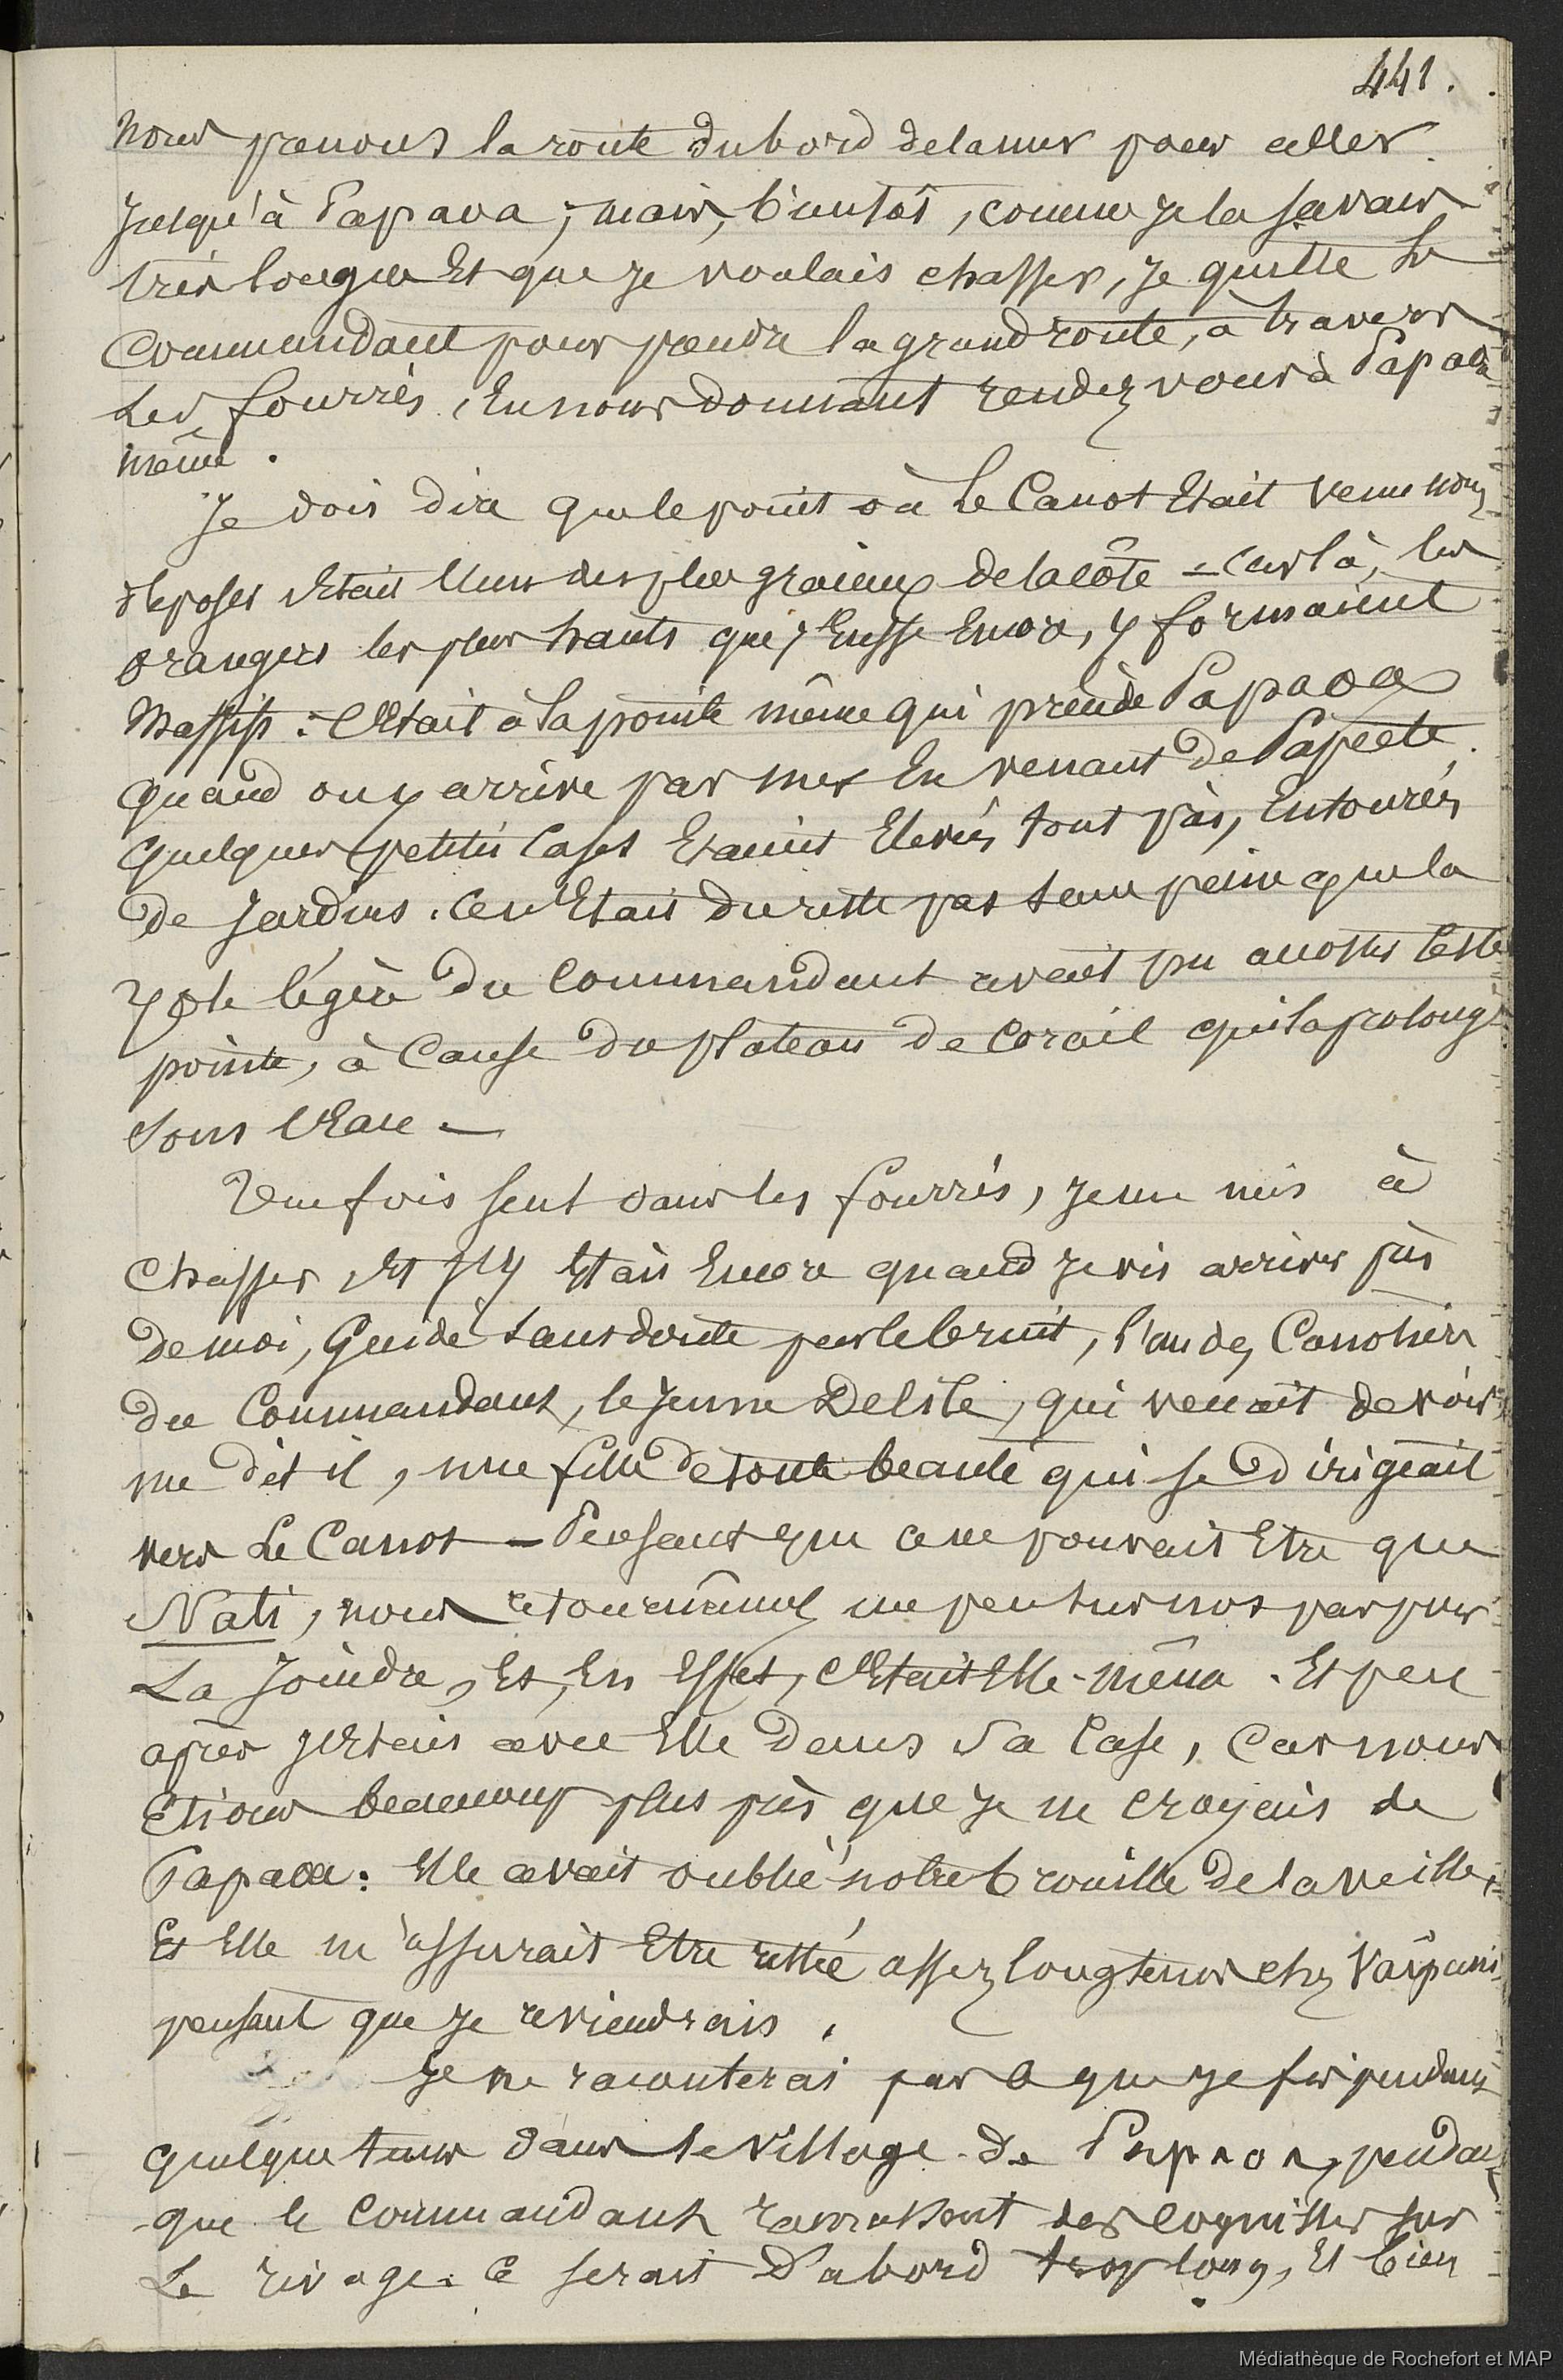 441.
nous prenons la route du bord de la mer pour aller
jusqu'à Papava ; mais, bientôt, comme je la savais
très longue Et que je voulais chasser, je quitte le
Commandant pour prendre la grand route, à travers
les fourrés, En nous donnant rendez vous à Papava
même.
Je dois dire que le point où le Canot Etait venu nous
déposer Etait l'un des plus gracieux de la côte – car là, les
orangers les plus hauts que j'Eusse Encore, y formaient
Massifs : C'Etait à la pointe même qui précède Papaoa
quand on y arrive par mer En venant de Papeete.
quelques petites Cases Etaient Elevées tout près, Entourées
de Jardins. Ce n'Etait du reste pas sans peine que la
Yole légère du Commandant avait pu accoster cette
pointe, à Cause du plateau de Corail qui la prolonge
sous l'Eau –
Une fois seul dans les fourrés, je me mis à
chasser Et j'y Etais Encore quand je vis arriver près
de moi, Guidé sans doute par le bruit, l'un des Canotiers
du Commandant, le jeune Delile, qui venait de voir,
me dit il, une fille de toute beauté qui se dirigeait
vers Le Canot – Pensant que ce ne pouvait Etre que
Nati, nous retournâmes un peu sur nos pas pour
La Joindre, Et, En Effet, C'Etait Elle-même. Et peu
après j'Etais avec Elle dans sa Case, Car nous
Etions beaucoup plus près que je ne croyais de
Papaoa : Elle avait oublié notre brouille de la veille,
Et Elle m'assurait Etre restée assez longtems chez
pensant que je reviendrais.
Je ne raconterai pas ce que je fis pendant
quelque tems dans le Village de Papaoa, pendant
que le Commandant ramassait des coquilles sur
Le rivage. Ce serait D'abord trop long, Et bien
Médiathèque de Rochefort et MAP